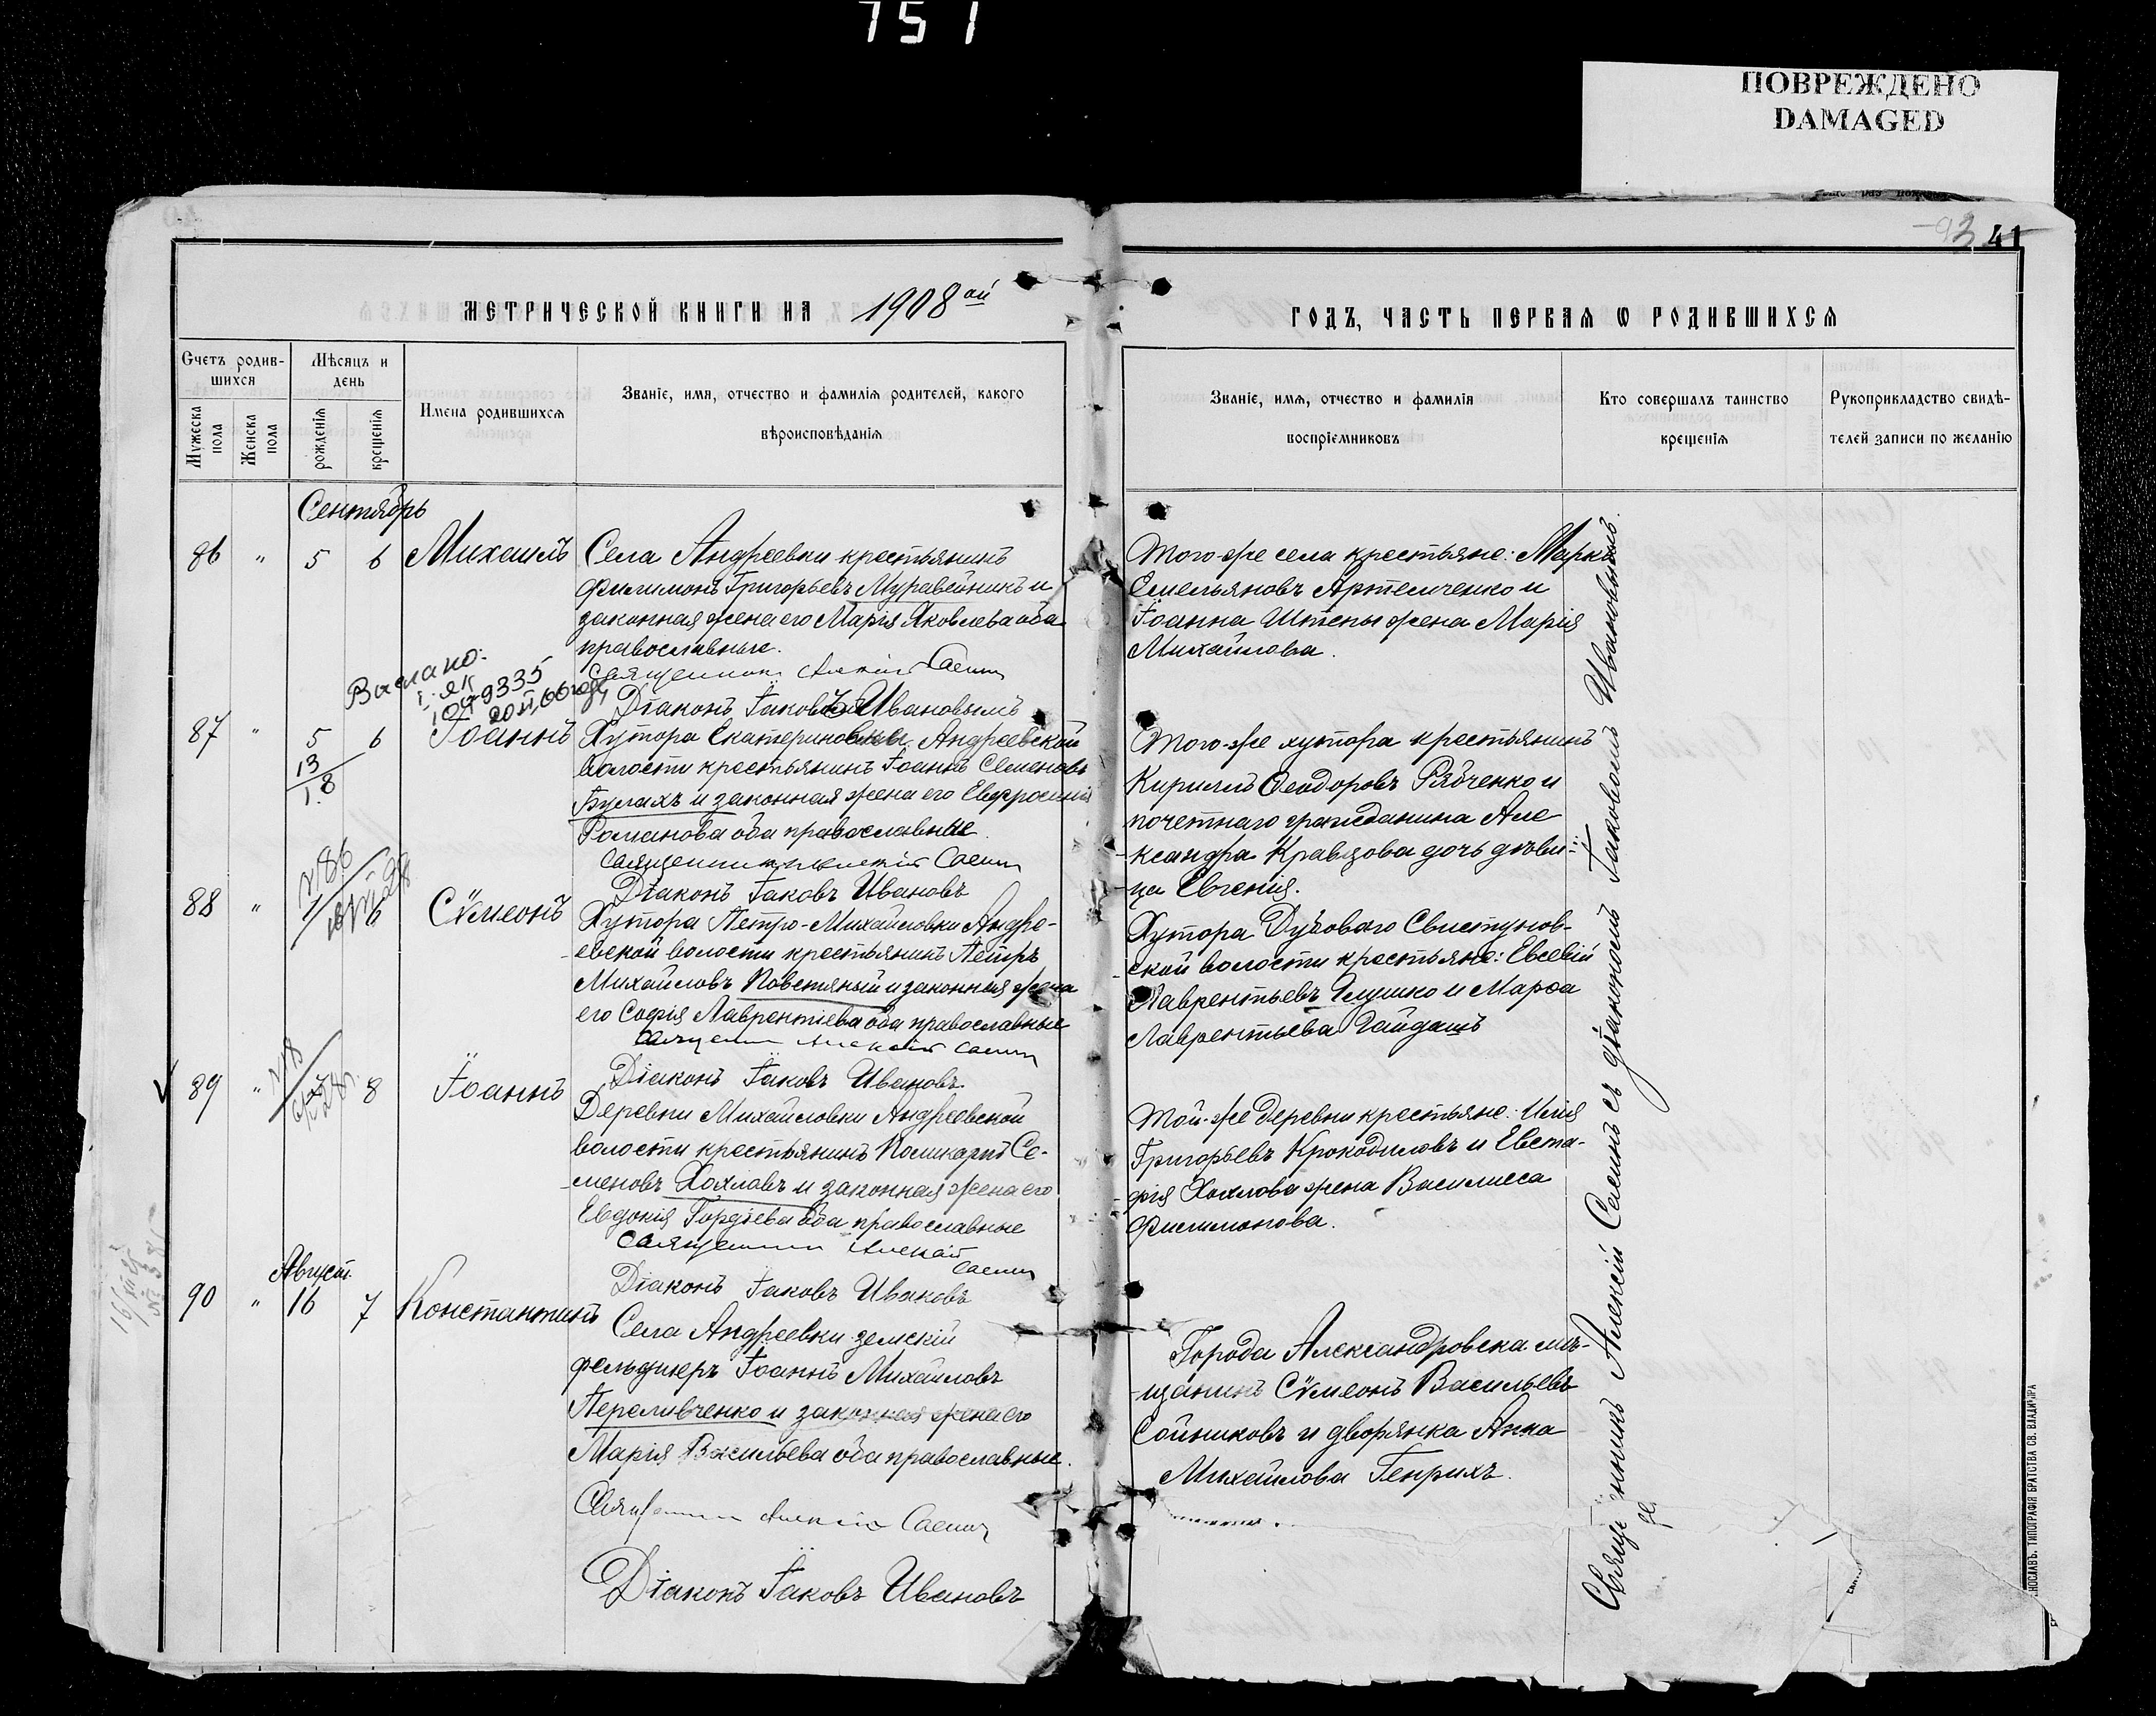 751
ПОВРЕЖДЕНО
DAMAGED
93 41
МЕТРИЧЕСКОЙ КНИГИ НА 1908 ой
ГОДЪ, ЧАСТЬ ПЕРВАЯ Ѡ РОДИВШИХСЯ
Счетъ родив-
шихся
Мужеска пола
Женска пола
Мѣсяцъ и
день
рожденія
крещенія
Имена родившихся
Званіе, имя, отчество и фамилія родителей, какого
вѣроисповѣданія
Званіе, имя, отчество и фамилія
воспріемниковъ
Кто совершалъ таинство
крещенія
Рукоприкладство свидѣ-
телей записи по желанію
Сентябрь
86 " 5 6 Михаилъ
Села Андреевки крестьянинъ
Филимонъ Григорьевъ Муравейникъ и
законная жена его Марія Яковлева оба
православные.
Священникъ Алексій Саенко
Діаконъ Іаковъ Ивановъ
Того-же села крестьяне: Маркъ
Емельяновъ Артельченко и
Іоанна Штепы жена Марія
Михайлова.
87 " 5 6 Іоаннъ
13
1.8
Хутора Екатериновки, Андреевской
волости крестьянинъ Іоаннъ Семеновъ
Булахъ и законная жена его Евфросинія
Романова оба православные.
Священникъ Алексій Саенко
Діаконъ Іаковъ Ивановъ
Того-же хутора крестьянинъ
Кириллъ Ѳеодоровъ Рябченко и
почетнаго гражданина Але
-ксандра Кравцова дочь дѣви-
-ца Евгенія.
88 " 6 Сѵмеонъ
Хутора Петро-Михайловки Андре-
-евской волости крестьянинъ Петръ
Михайловъ Повстяный и законная жена
его Софія Лаврентіева оба православные
Священникъ Алексій Саенко
Діаконъ Іаковъ Ивановъ
Хутора Духоваго Свистунов-
-ской волости крестьяне: Евсевій
Лаврентьевъ Глушко и Марѳа
Лаврентьева Гайдашъ
89 " 8 Іоаннъ
Деревни Михайловки Андреевской
волости крестьянинъ Поликарпъ Се-
-меновъ Хохловъ и законная жена его
Евдокія Гордѣева оба православные
Священникъ Алексій
Саенко
Діаконъ Іаковъ Ивановъ
Той-же деревни крестьяне: Илія
Григорьевъ Крокодиловъ и Евста-
-фія Хохлова жена Василиса
Филимонова.
Август.
90 " 16 7 Константинъ
Села Андреевки земскій
фельдшеръ Іоаннъ Михайловъ
Переливченко и законная жена его
Марія Васильева оба православные.
Священникъ Алексій Саенко
Діаконъ Іаковъ Ивановъ
Города Александровска мѣ-
-щанинъ Сѵмеонъ Васильевъ
Сойниковъ и дворянка Анна
Михайлова Генрихъ.
Священникъ Алексій Саенко съ діакономъ Іаковомъ Ивановымъ.
ТИПОГРАФІЯ БРАТСТВА СВ. ВЛАДИМІРА